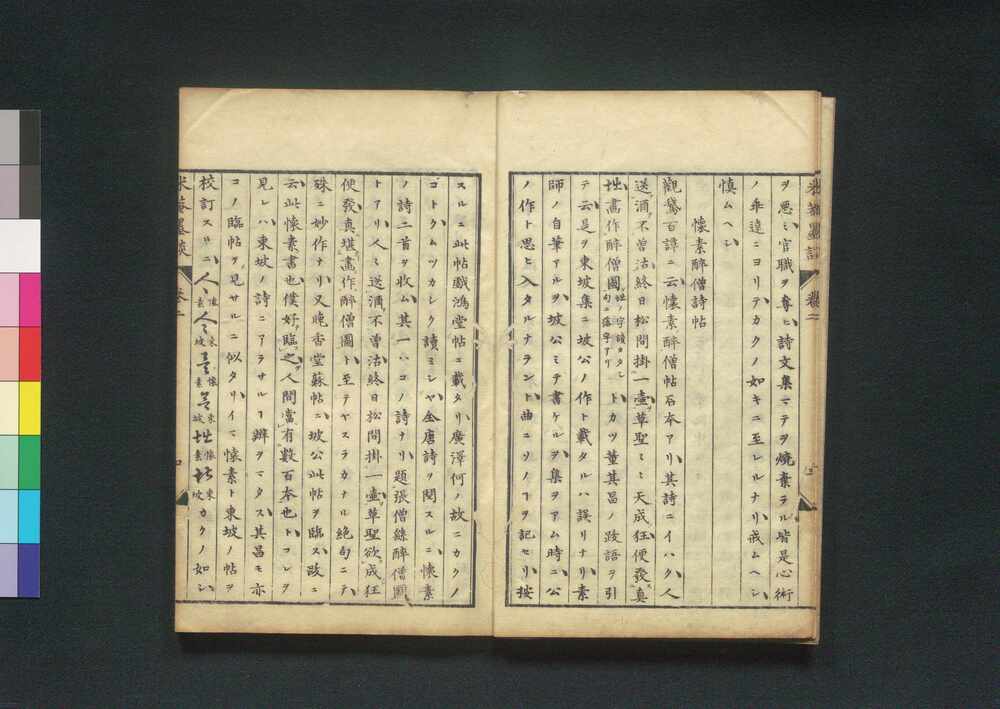 ヲ悪ミ官職ヲ奪ヒ詩文集マテヲ焼棄ラル皆是心術
ノ乖違ニヨリテカクノ如キニ至レルナリ戒ムヘシ
慎ムヘシ
懐素醉僧詩帖
觀鵞百譚ニ云懐素醉僧帖石本アリ其詩ニイハク人
送酒不曽沽終日松間掛一壷草聖ミミ天成狂便發真
堪畵作醉僧圖トカツ董其昌ノ跋語ヲ引
テ云是ヲ東坡集ニ坡公ノ作ト載タルハ誤リナリ素
師ノ自筆アルヲ坡公ミテ書ケルヲ集ヲアム時ニ公
ノ作ト思ヒ入タルナラント曲ニソノヿヲ記セリ按
スルニ此帖戯鴻堂帖ニ載タリ廣澤何ノ故ニカクノ
コトクムツカシク讀ミシヤ全唐詩ヲ閲スルニ懐素
ノ詩二首ヲ收ム其一ハコノ詩ナリ題張僧繇醉僧圖
トアリ人ミ送酒不曽沽終日松間掛一壷草聖欲成狂
便發真堪畵作醉僧圖ト至テヤスラカナル絶句ニテ
殊ニ妙作ナリ又晩香堂蘇帖ニ坡公此帖ヲ臨ス跋ニ
云此懐素書也僕好臨之人間當有數百本也トコレヲ
見レハ東坡ノ詩ニアラサルヿ辨ヲマタス其昌モ亦
コノ臨帖ヲ見サルニ似タリイマ懐素ト東坡ノ帖ヲ
校訂スルニ
懐素
東坡
懐素
東坡
懐素
東坡
カクノ如シ
米菴墨談 巻二